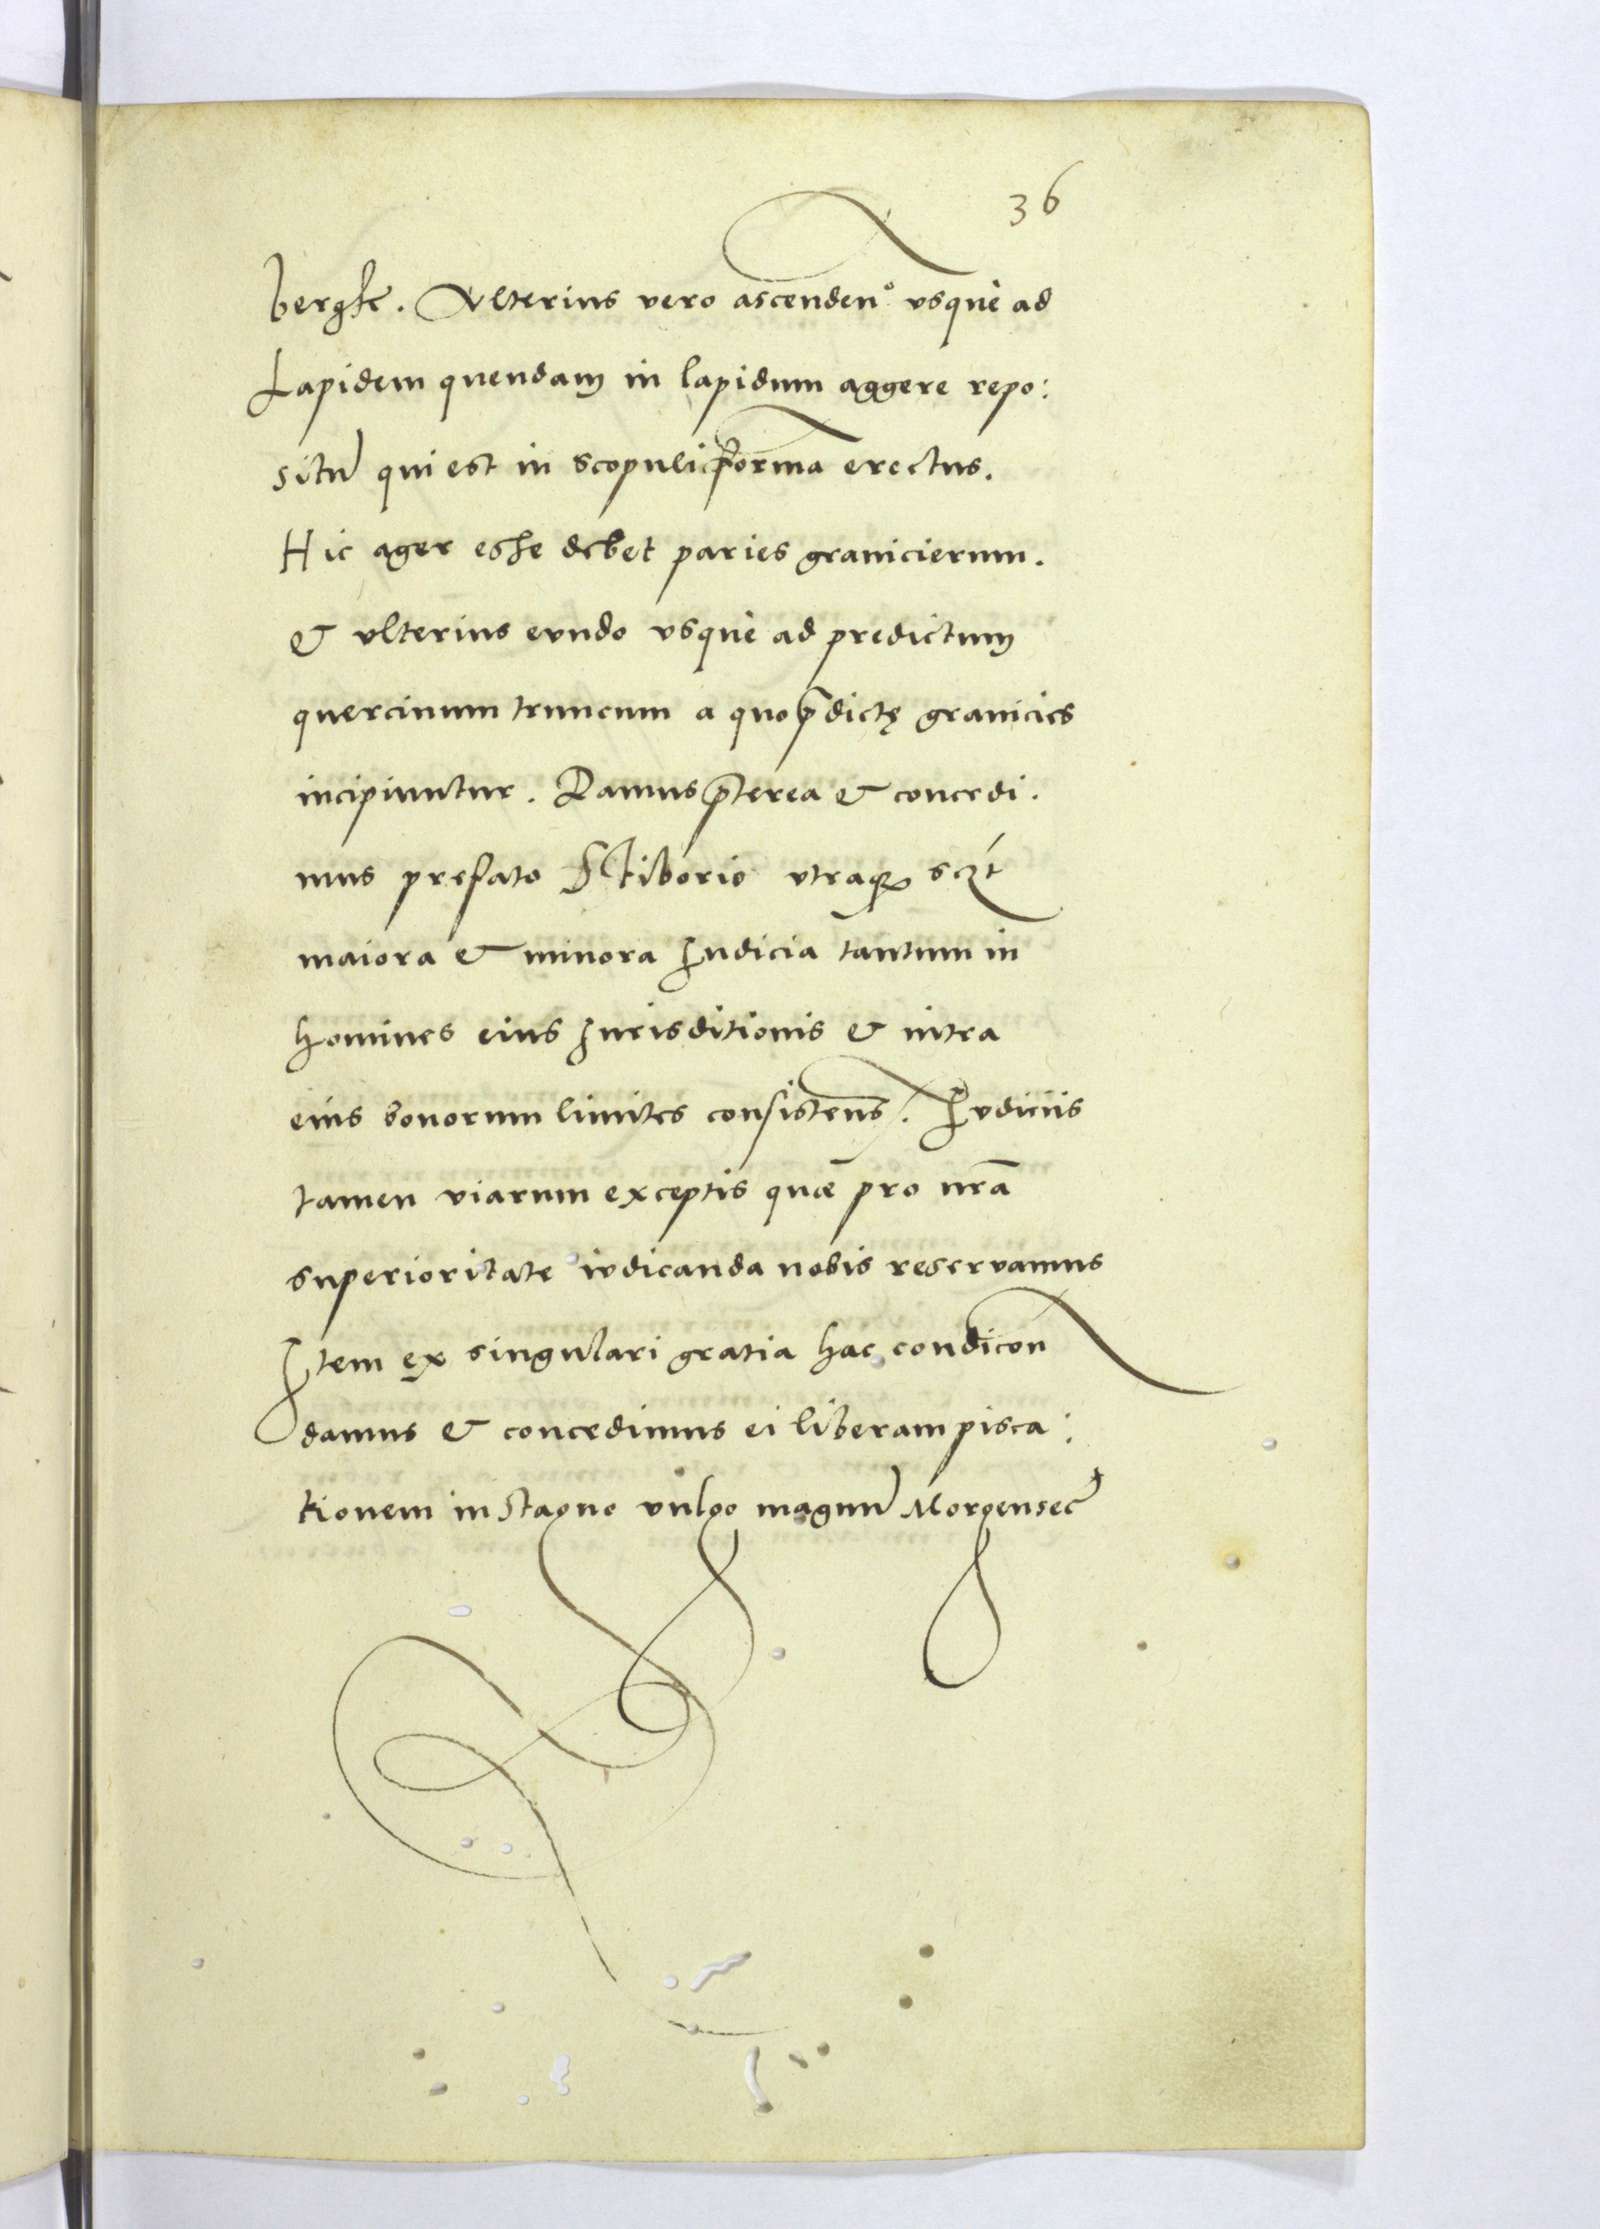 36
bergk. Vlterius vero ascenden° vsque ad
Lapidem quendam in lapidum aggere repo:
situ̅ qui est in scopuli forma erectus.
Hic ager esse debet paries granicierum.
& vlterius eundo vsque ad predictum
quercinum truncum a quo p̅dictę granicies
incipiuntur. Damus p̅terea & concedi.
mus prefato Stiborio vtraqꝫ sczt
maiora & minora Iudicia tantum in
homines eius Iurisditionis & intra
eius bonorum limites consistens. Iudiciis
tamen viarum exceptis quæ pro nr̅a
superioritate iudicanda nobis reservamus
Item ex singulari gratia hac condicon
damus & concedimus ei liberam pisca:
tionem in stagno vulgo magnu̅ Morgensee